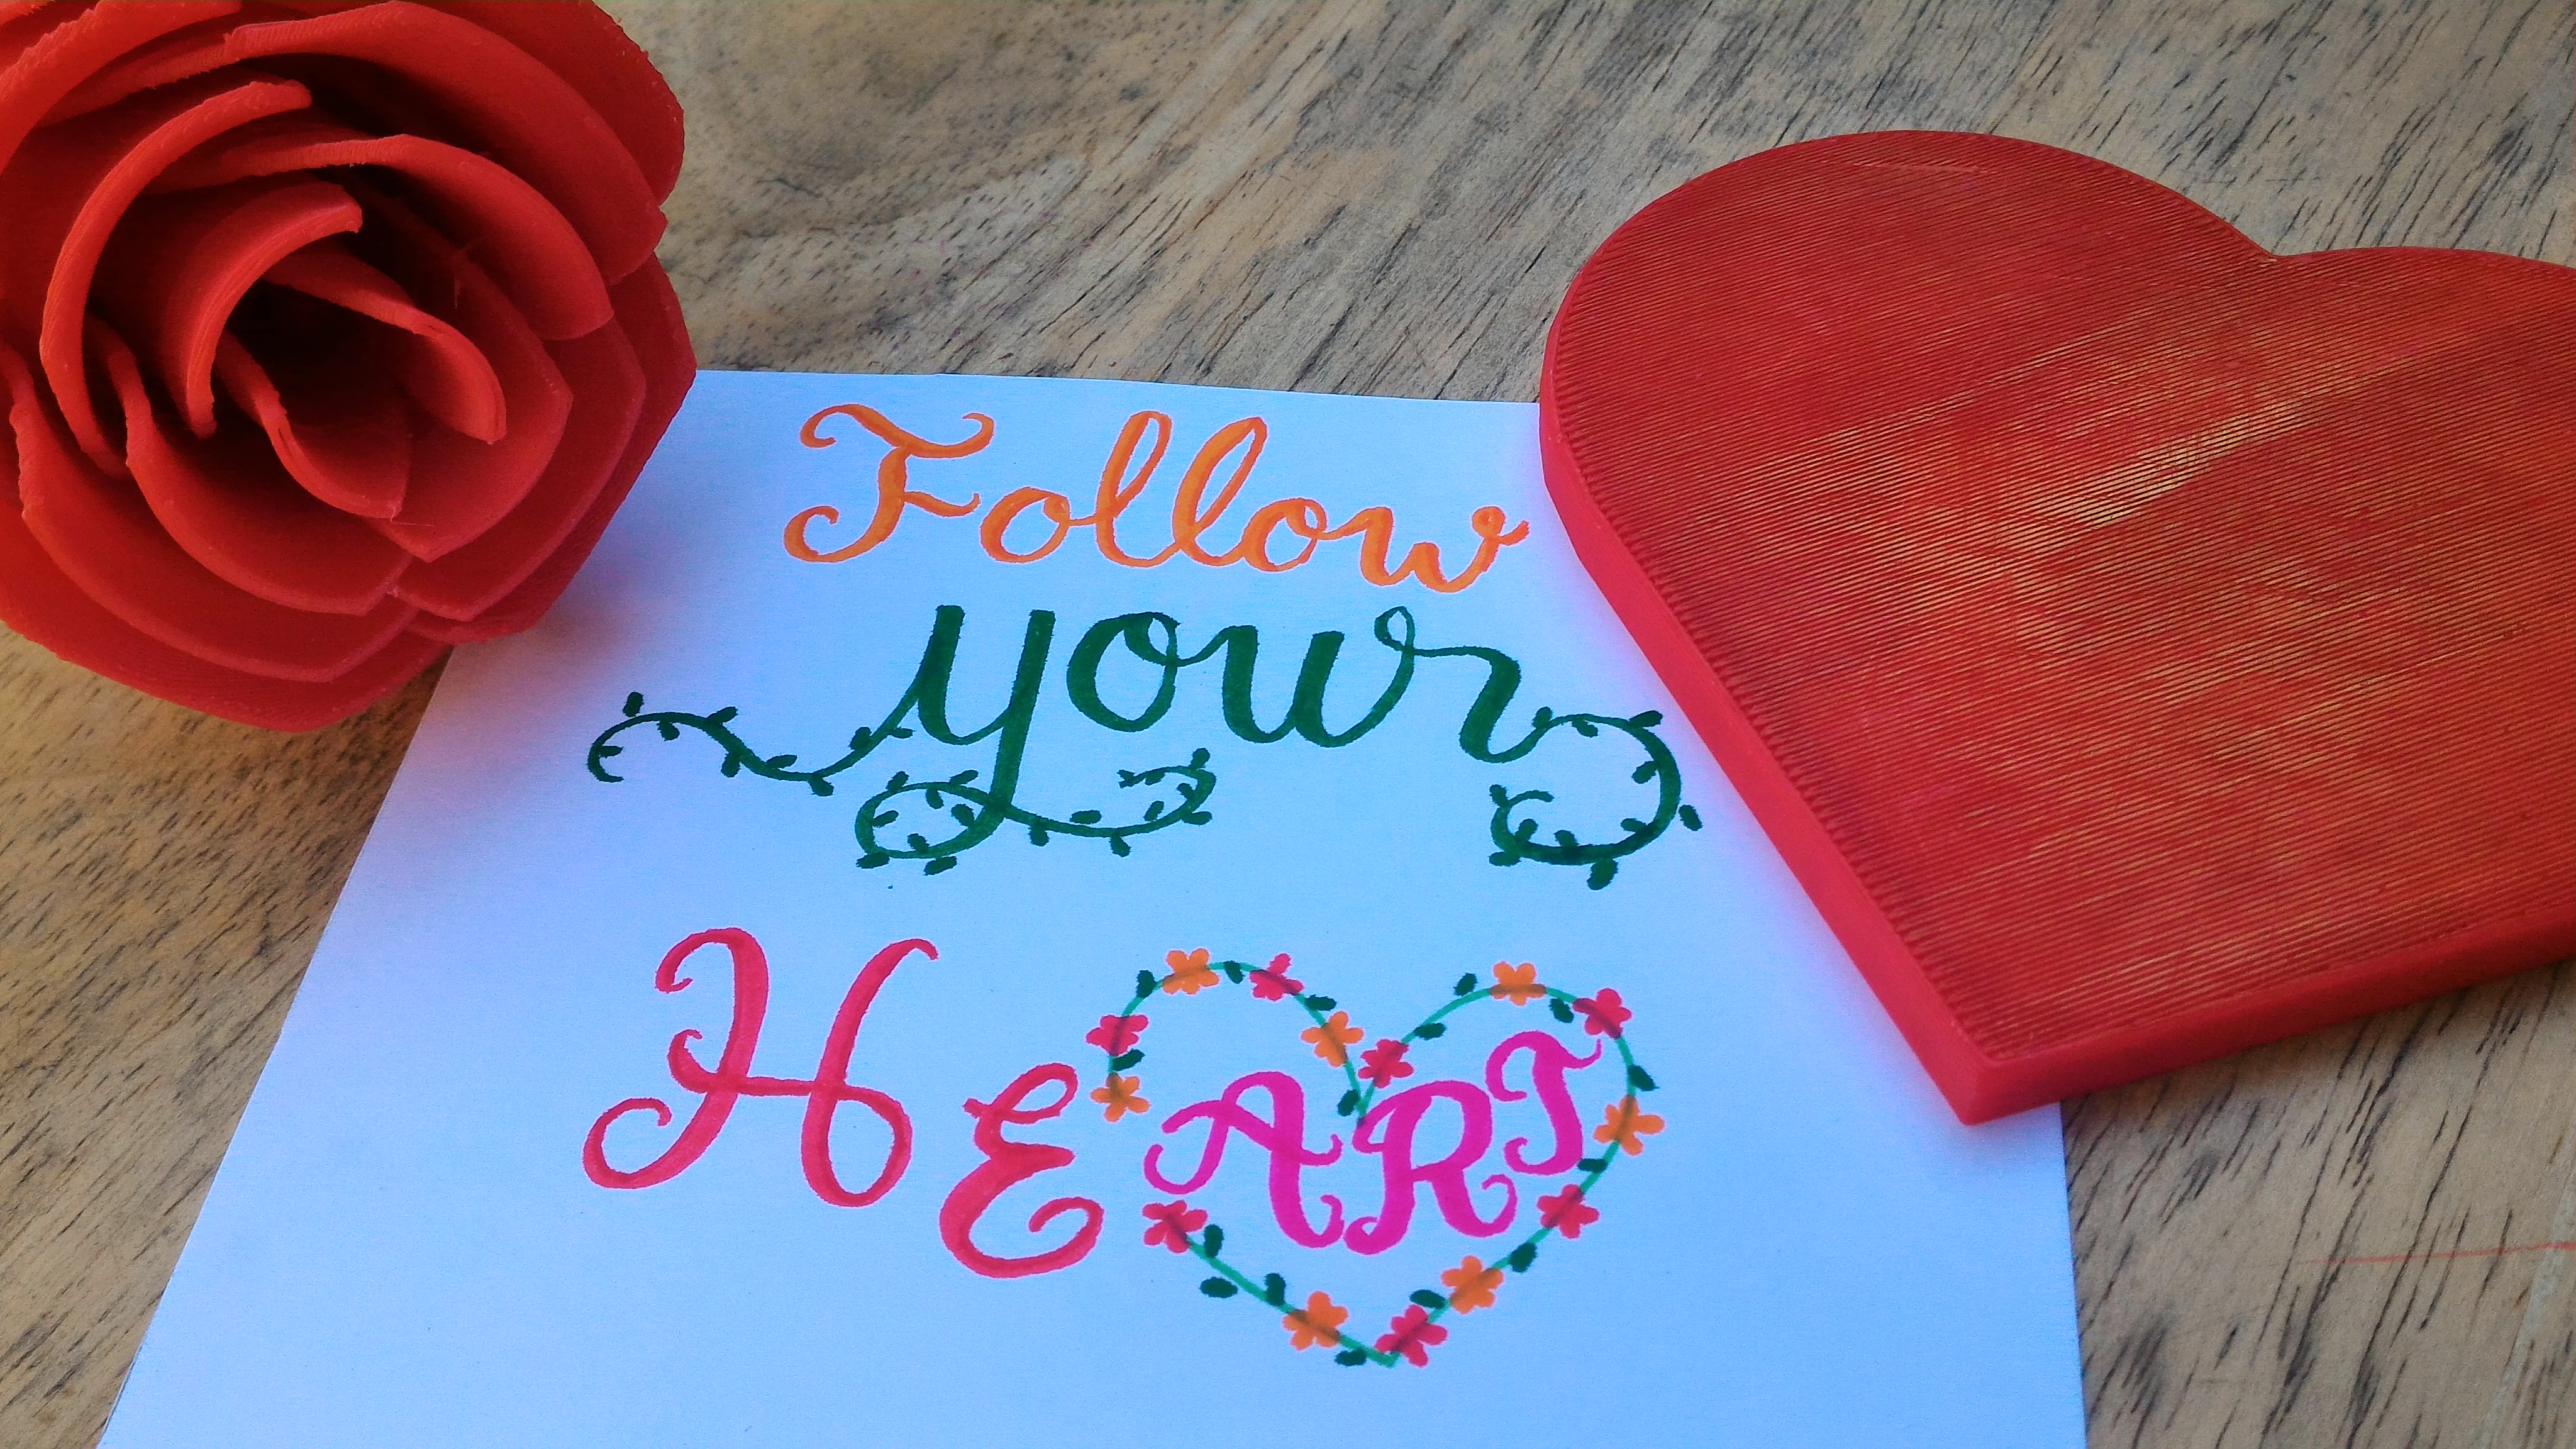 Follow
your
HEART